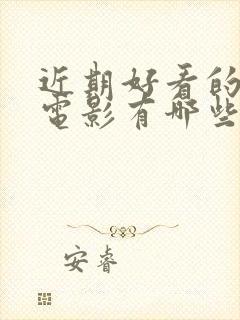 近期好看的
电影有哪些
安睿